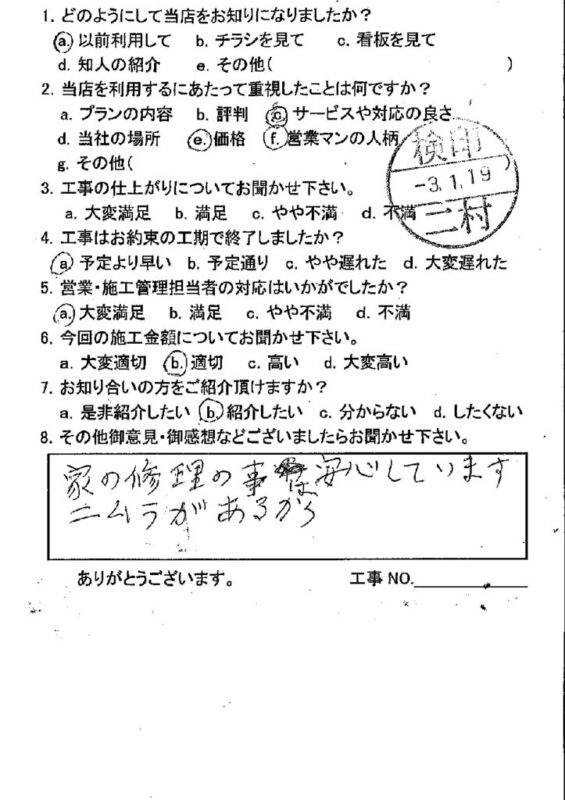 1. どのようにして当店をお知りになりましたか？
a. 以前利用して b. チラシを見て c. 看板を見て
d. 知人の紹介 e. その他( )
2. 当店を利用するにあたって重視したことは何ですか？
a. プランの内容 b. 評判 c. サービスや対応の良さ
d. 当社の場所 e. 価格 f. 営業マンの人柄
g. その他( )
検印
-3.1.19
二村
3. 工事の仕上がりについてお聞かせ下さい。
a. 大変満足 b. 満足 c. やや不満 d. 不満
4. 工事はお約束の工期で終了しましたか？
a 予定より早い b. 予定通り c. やや遅れた d. 大変遅れた
5. 営業・施工管理担当者の対応はいかがでしたか？
a. 大変満足 b. 満足 c. やや不満 d. 不満
6. 今回の施工金額についてお聞かせ下さい。
a. 大変適切 b. 適切 c. 高い d. 大変高い
7. お知り合いの方をご紹介頂けますか？
a. 是非紹介したい b 紹介したい c. 分からない d. したくない
8. その他御意見・御感想などございましたらお聞かせ下さい。
家の修理の事は安心しています
ニムラがあるから
ありがとうございます。 工事NO.